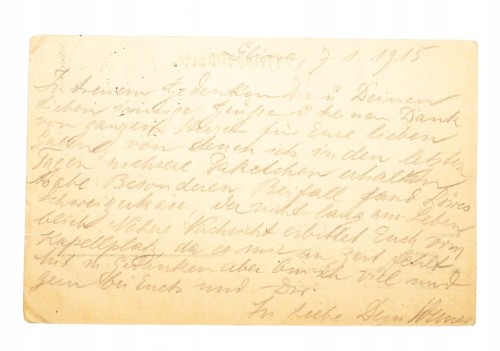 7.1.1915
In treuem Gedenken Dir u Deinen
Lieben innige Grüße u meinen Dank
von ganzem Herzen für Eure lieben
Gaben, von denen ich in den letzten
Tagen mehrere Paketchen erhalten
habe. Besonderen Beifall fand
Schweizerkäse der nicht lang am Leben
blieb. Nähere Nachricht erbittet Euch vom
Kapellplatz, da es mir an Zeit fehlt
Mit m. Gedanken aber bin ich viel und
gern bei Euch und Dir.
In Liebe Dein Werner